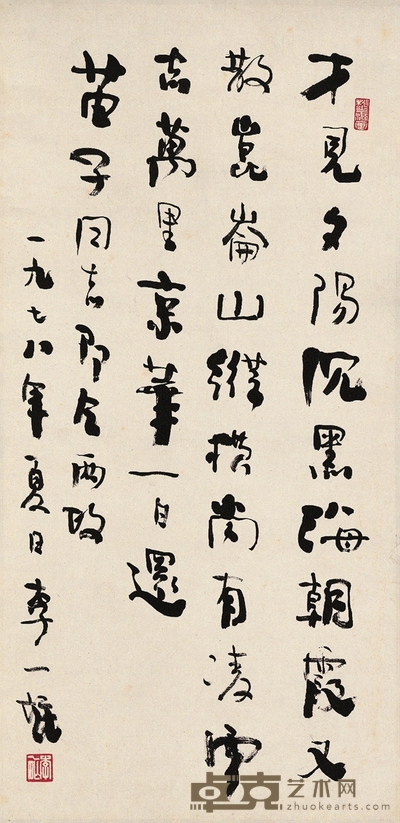 才見夕陽沉黑海朝霞又
散崑崙山縱橫尚有凌雲
志萬里京華一日還
苗子同志即令两政
一九七八年夏日李一氓
卓克艺术网
zhuokearts.com